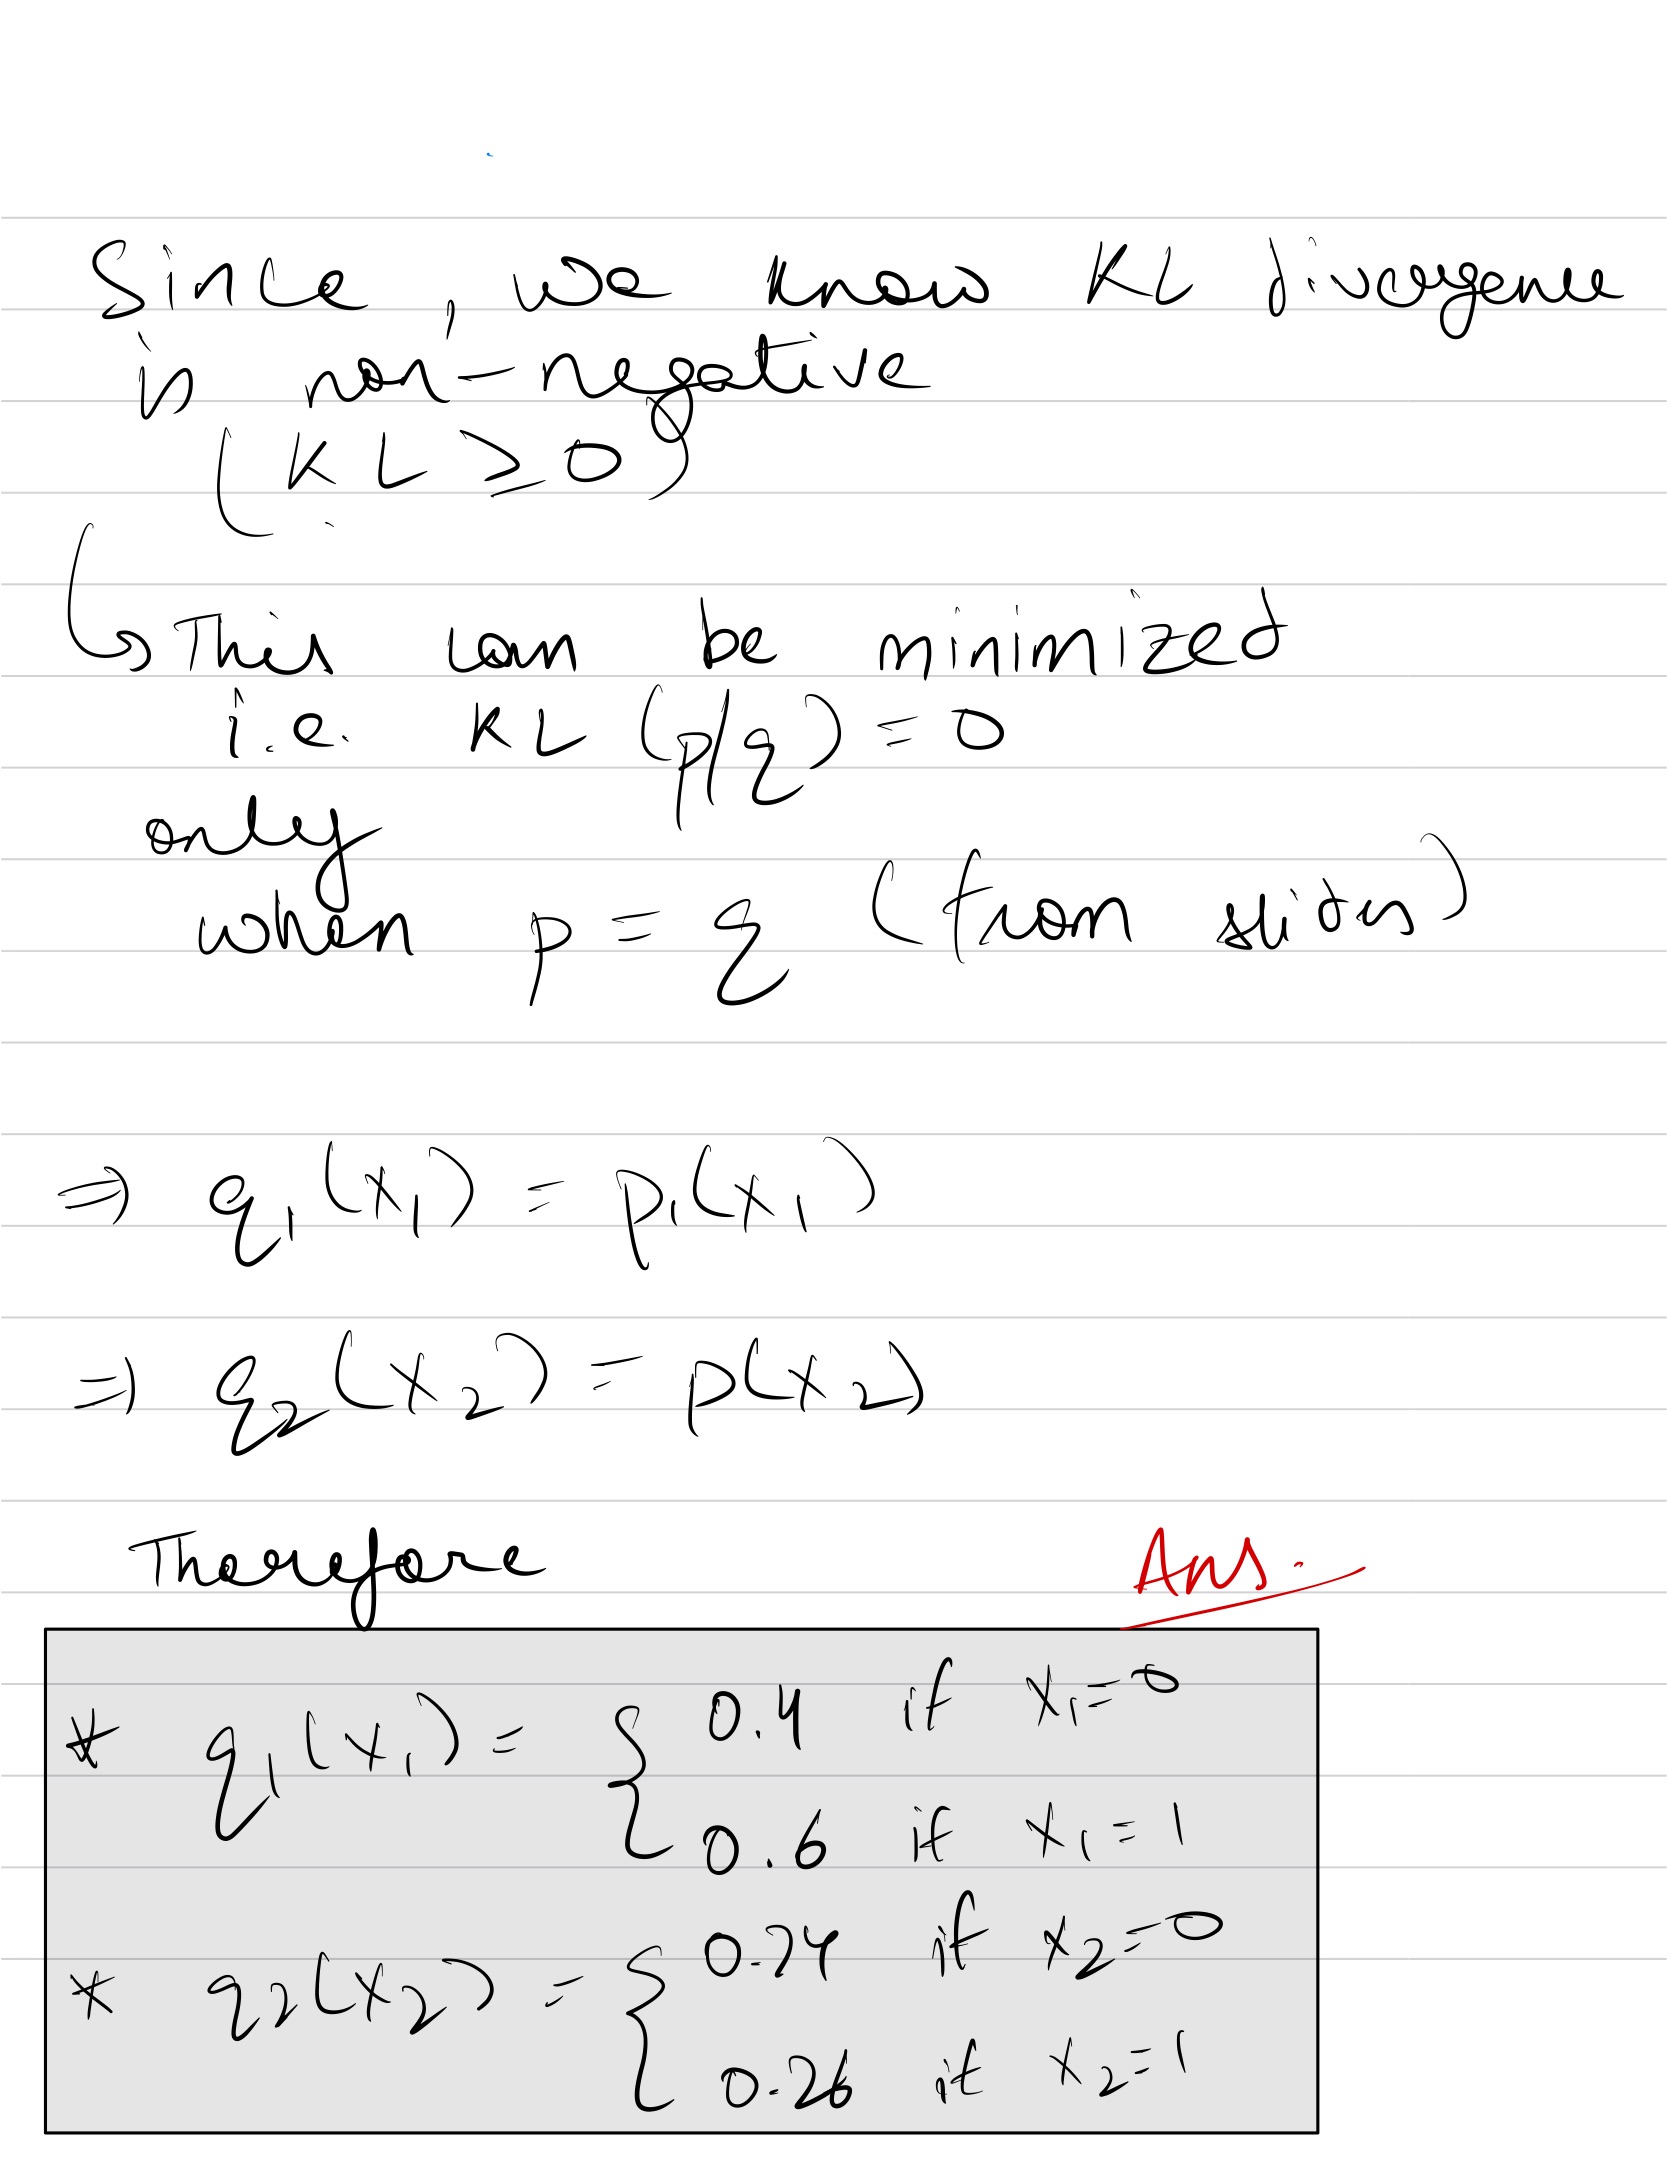 Since, we know KL divergence
is non-negative
(KL ≥ 0)
↳ This can be minimized
i.e. KL (p/q) = 0
only
when p = q (from slides)
⇒ q₁(x₁) = p₁(x₁)
⇒ q₂(x₂) = p(x₂)
Therefore Ans.
* q₁(x₁) = { 0.4 if x₁=0
0.6 if x₁=1
* q₂(x₂) = { 0.74 if x₂=0
0.26 if x₂=1